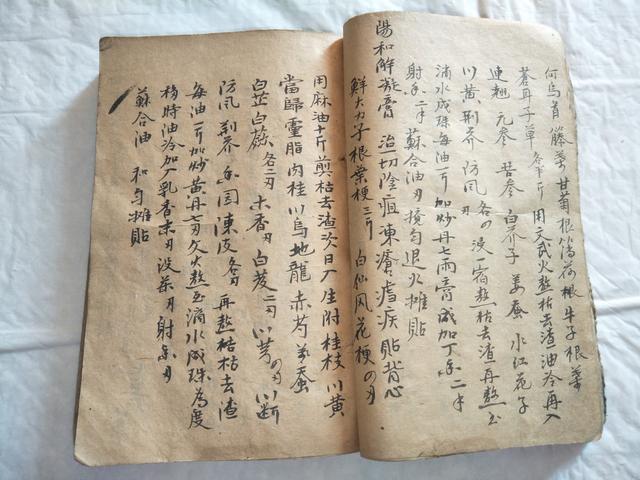 何烏首藤葉 甘菊根 薄荷根 牛子根葉
蒼耳子草 各半斤 用文武火熬枯去渣油冷再入
連翹 元參 苦參 白芥子 姜蚕 水紅花子
川黄 荆芥 防風 各 浸一宿熬枯去渣再熬至
滴水成珠每油一斤加炒丹七両膏成加丁香二
射香二 蘇合油 攪匀退火摊貼
陽和解凝膏 治一切陰疽凍瘡瘧疾貼背心
鮮大力子根葉梗三斤 白仙風花梗
用麻油十斤煎枯去渣次日入生附 桂枝 川黄
當歸 靈脂 肉桂 川烏 地龍 赤芍 姜蚕
白芷 白蘞 各二 木香 白芨二 川芎 川断
防風 荆芥 香圆 陳皮 各 再熬枯枯去渣
每油一斤加炒黄丹七 文火熬至滴水成珠為度
移時油冷加入乳香末 没茶 射香
蘇合油 和匀摊貼